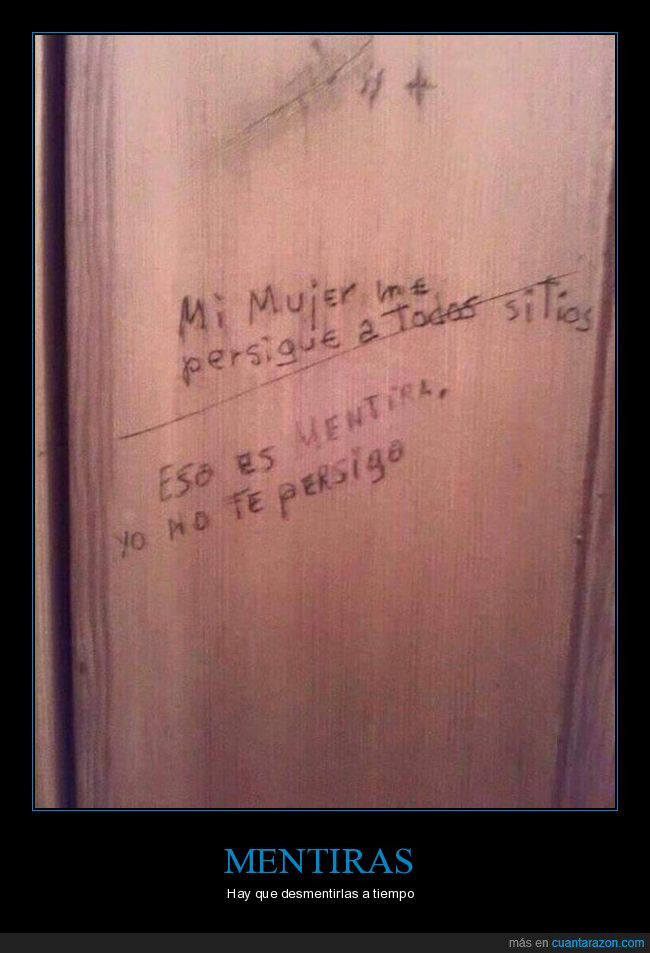 Mi Mujer me
persigue a Todos sitios
Eso es MENTIRA,
yo no TE PERSigo
MENTIRAS
Hay que desmentirlas a tiempo
más en cuantarazon.com